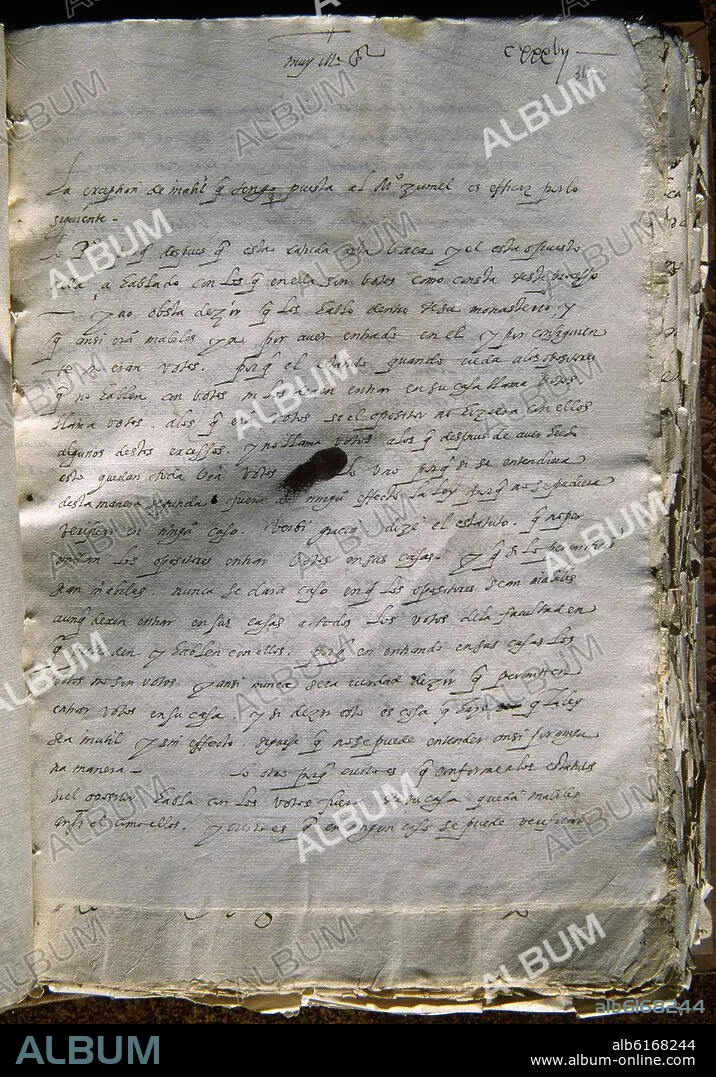 muy Ill. Sr
cxxxbij
31
La excepcion de inabil q tengo puesta al Mo zumel es efficaz por lo
siguiente.
Lo Po porq despues q esta catreda esta baca y el esta opuesto
a ella, a hablado con los q en ella son botos como consta deste processo
y no obsta dezir q les hablo dentro de su monasterio y
q ansi eran inabiles ya por auer entrado en el y por consiguien
te no eran votos. porq el estatuto quando veda a los opositores
q no hablen con votos ni los dexen entrar en su casa llama botos.
llama votos. a los q eran votos si el opositor no hiziera con ellos
algunos destos excessos. y no llama votos a los q despues de auer hecho
esto quedan sin votos lo uno porq si se entendiera
desta manera segunda fuera de ningun effecto la ley porq no se pudiera
verificar en ningun caso. Verbi gracia dize el estatuto. q no per
mitan los opositores entrar botos en sus casas. y q si lo permitieren
sean inabiles. nunca se dara caso en q los opositores sean inabiles
aunq dexen entrar en sus casas a todos los votos de la facultad en
q pretenden y hablen con ellos. porq en entrando en sus casas los
votos no son votos y ansi nunca sera verdad dezir q permitten
entrar votos en su casa. y si dezir esto es cosa q haze q la ley
sea inutil y sin effecto. siguese q no se puede entender ansi por ningu
na manera. Lo otro porq cierto es q conforme a los estatutos
si el opositor habla con los votos fuera de su casa queda inabile
ansi el como ellos. y cierto es q en ningun caso se puede verificar
ALBUM
alb6168244
ALBUM
alb6168244
www.album-online.com